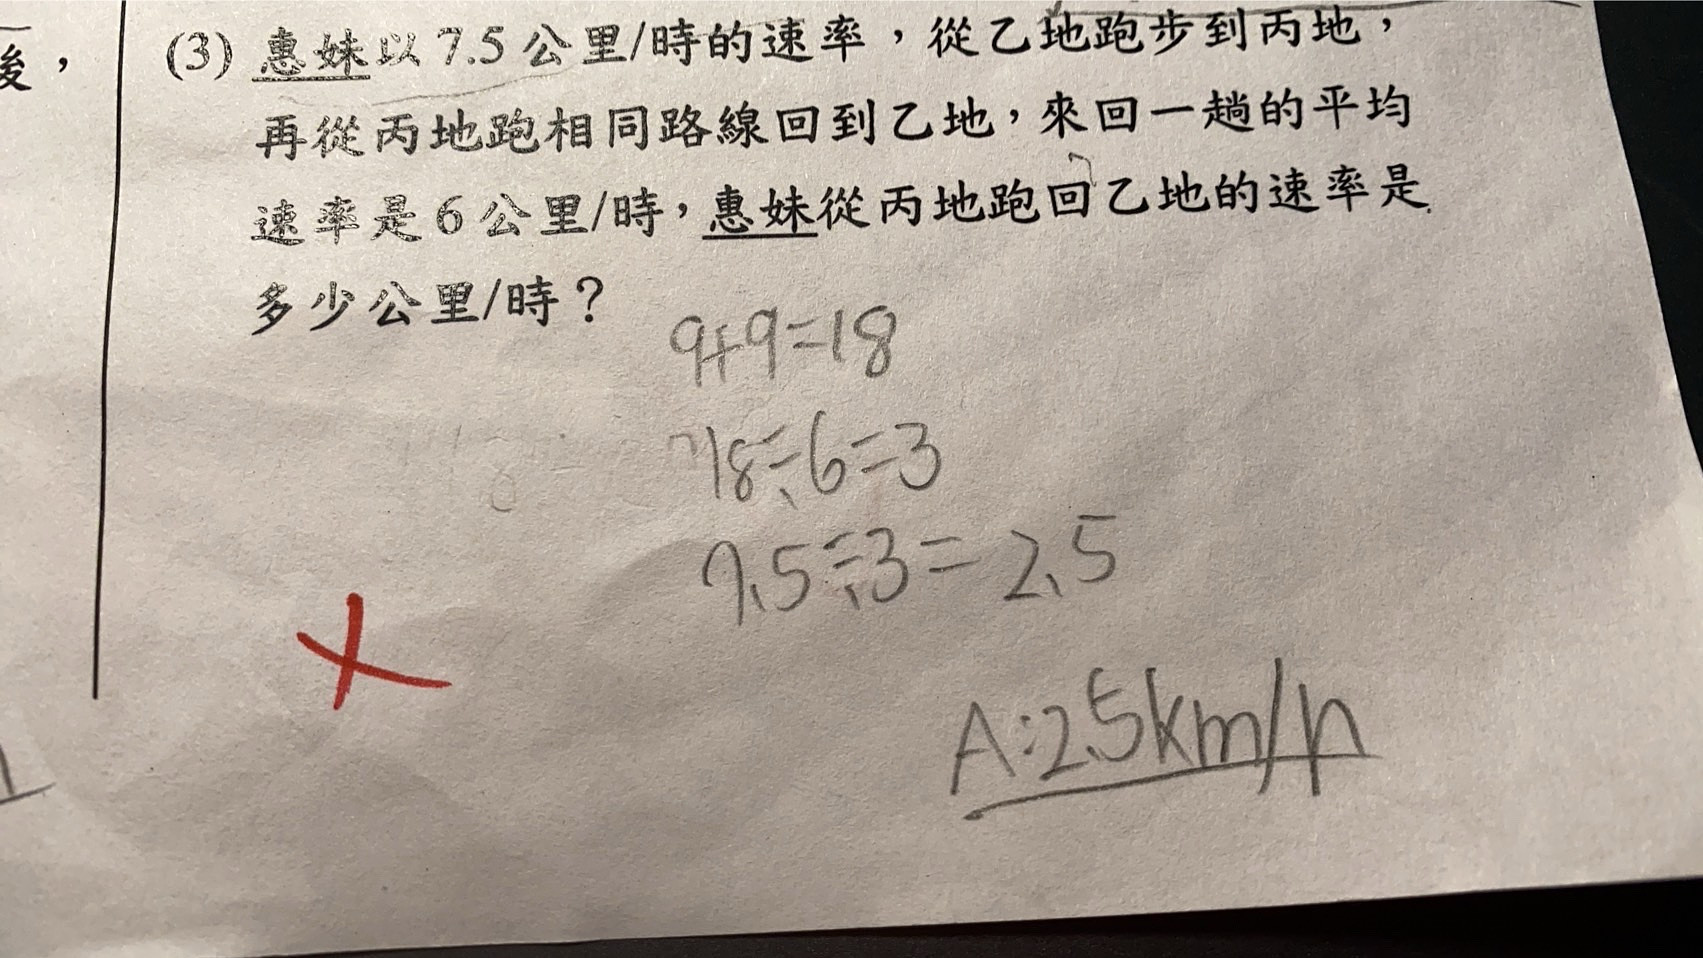 後，
(3) 惠妹以 7.5 公里/時的速率，從乙地跑步到丙地，
再從丙地跑相同路線回到乙地，來回一趟的平均
速率是 6 公里/時，惠妹從丙地跑回乙地的速率是
多少公里/時？
9+9=18
18÷6=3
7.5÷3=2.5
A:2.5km/h